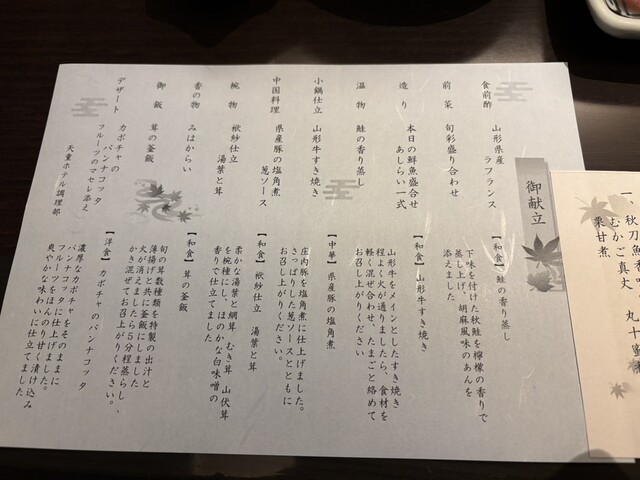 御献立
食前酢　山形県産
ラフランス
前菜　旬彩盛り合わせ
造り　本日の鮮魚盛合せ
あしらい一式
温物　鮭の香り蒸し
小鍋仕立　山形牛すき焼き
中国料理　県産豚の塩角煮
葱ソース
椀物　袱紗仕立
湯葉と茸
香の物　みはからい
御飯　茸の釜飯
デザート　カボチャの
パンナコッタ
フルーツのマセレ添え
天童ホテル調理部
【和食】鮭の香り蒸し
下味を付けた秋鮭を檸檬の香りで
蒸し上げ、胡麻風味のあんを
添えました
【和食】山形牛すき焼き
山形牛をメインとしたすき焼き
程よく火が通りましたら、食材を
軽く混ぜ合わせ、たまごと絡めて
お召し上がりください
【中華】県産豚の塩角煮
庄内豚を塩角煮に仕上げました。
さっぱりした葱ソースとともに
お召し上がりください。
【和食】袱紗仕立　湯葉と茸
柔かな湯葉と網茸　むき茸　山伏茸
を椀種にし、ほのかな白味噌の
香りで仕立てました
【和食】茸の釜飯
旬の茸数種類を特製の出汁と
薄揚げと共に釜飯にしました
火が消えましたら5分程蒸らし、
かき混ぜてお召上がりください。
【洋食】カボチャのパンナコッタ
濃厚なカボチャをそのままに
パンナコッタに仕上げました。
フルーツにほんのり甘く漬け込み
爽やかな味わいに仕立てました
一、秋刀魚
むかご真丈　丸十蜜煮
栗甘煮